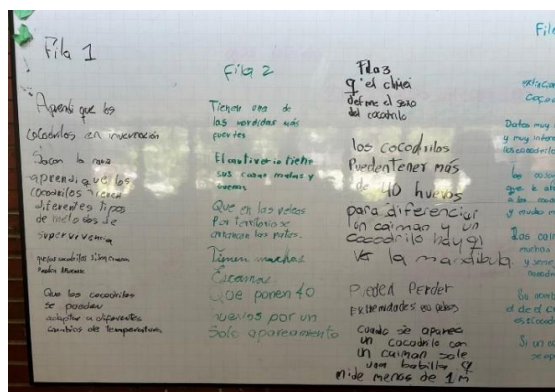 Fila 1
Aprendi que los
cocodrilos en invernación
Sacan la nariz
aprendi que los
cocodrilos tienen
diferentes tipos
de metodos de
supervivencia
Que los cocodrilos
se pueden
adaptar a diferentes
cambios de temperatura
Fila 2
Tienen una de
las mordidas más
fuertes
El cautiverio tiene
sus cosas malas y
buenas
Que en las peleas
Por territorio se
arrancan las patas.
Tienen muchas
Escamas
Que ponen 40
huevos por un
Solo apareamiento
Fila 3
q' el clima
define el sexo
del cocodrilo
los cocodrilos
Pueden tener más
de 40 huevos
para diferenciar
un caiman y un
cocodrilo hay q'
ver la mandibula
Pueden Perder
Extremidades en peleas
Cuando se aparea
un cocodrilo con
un caiman sale
una babilla q
mide menos de 1 m
Datos muy
y muy
los cocodrilo
Los
muchas
Si un